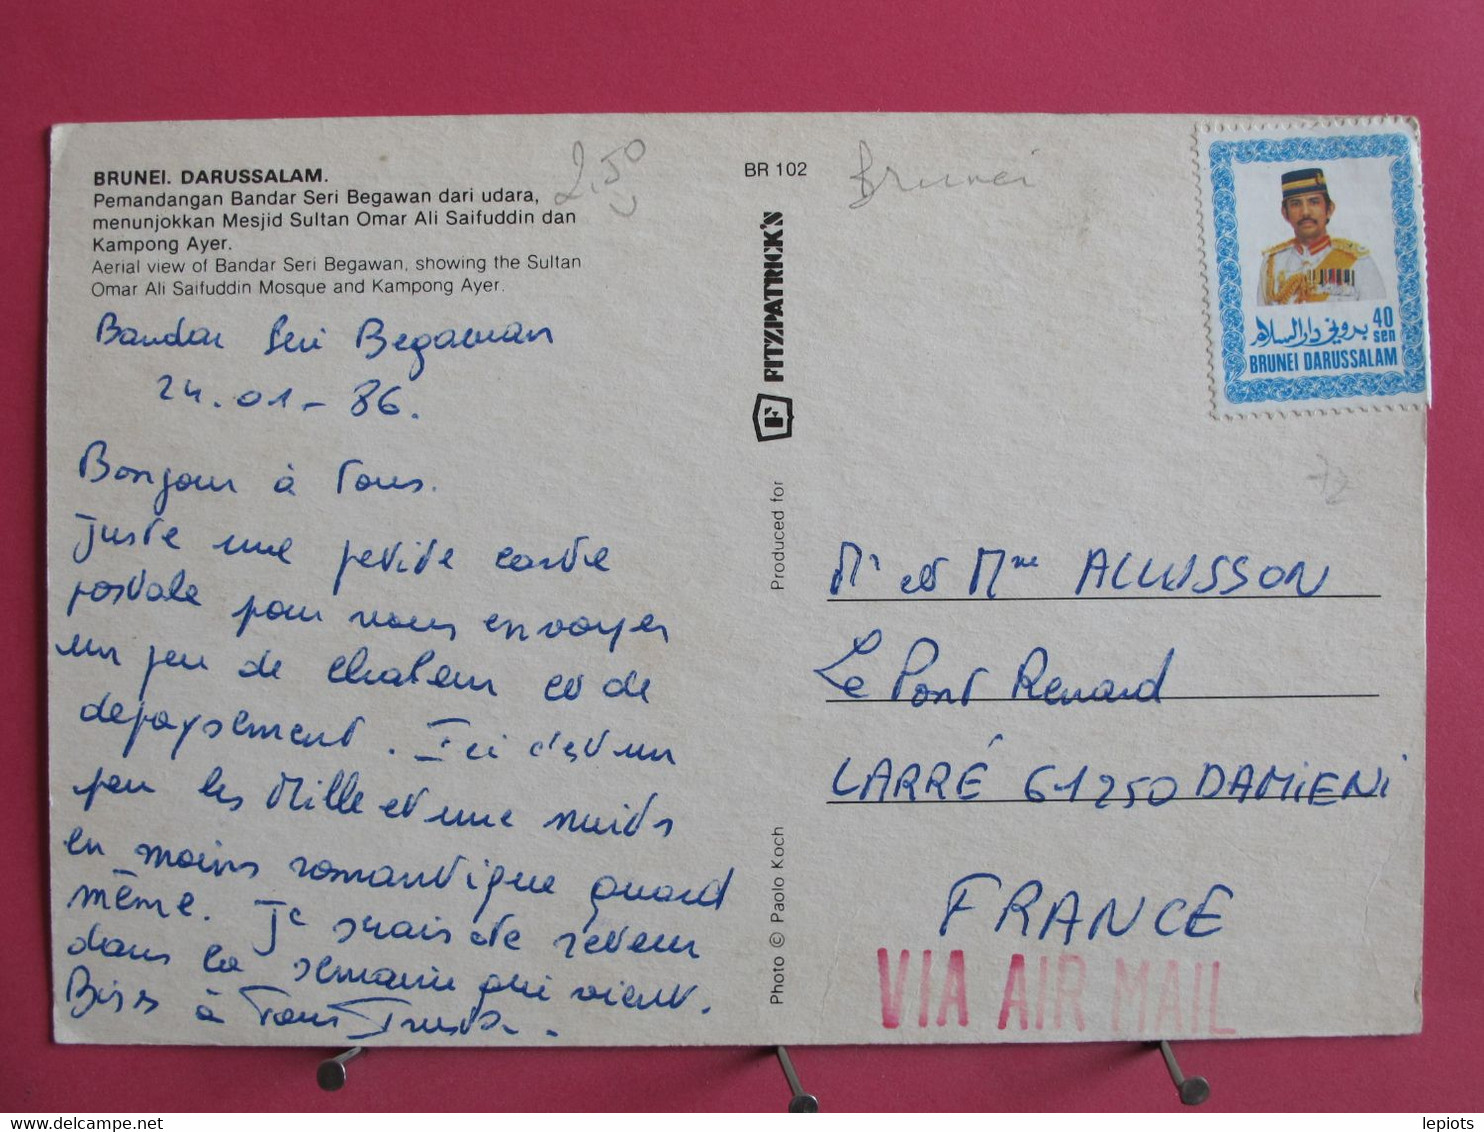 BRUNEI. DARUSSALAM.
Pemandangan Bandar Seri Begawan dari udara,
menunjokkan Mesjid Sultan Omar Ali Saifuddin dan
Kampong Ayer.
Aerial view of Bandar Seri Begawan, showing the Sultan
Omar Ali Saifuddin Mosque and Kampong Ayer.
2,50
Bandar Seri Begawan
24.01-86.
Bonjour à Tous.
Juste une petite carte
postale pour vous envoyer
un peu de chaleur et de
depaysement. Ici c'est un
peu les Mille et une nuits
en moins romantique quand
même. Je serais de retour
dans la semaine qui vient.
Bises à Tous
BR 102
FITZPATRICK'S
F
Produced for
Photo © Paolo Koch
Brunei
بروني دارالسلام
40
sen
BRUNEI DARUSSALAM
72
Mr et Mme ALLUSSON
Le Pont Renard
LARRÉ 61250 DAMIENI
FRANCE
VIA AIR MAIL
lepiots